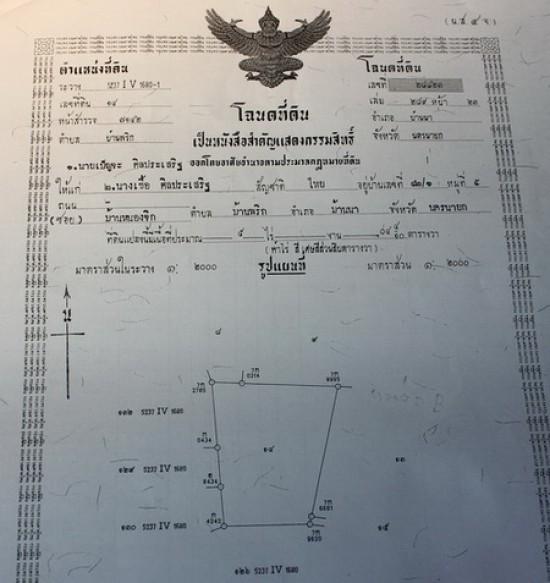 (น.ส ๔ จ)
ตำแหน่งที่ดิน
ระวาง 5237 IV 1680-1
เลขที่ดิน ๑๔
หน้าสำรวจ ๗๑๔๒
ตำบล บ้านพริก
โฉนดที่ดิน
เลขที่ ๒๘๔๒๓
เล่ม ๒๘๕ หน้า ๒๓
อำเภอ บ้านนา
จังหวัด นครนายก
โฉนดที่ดิน
เป็นหนังสือสำคัญแสดงกรรมสิทธิ์
ออกโดยอาศัยอำนาจตามประมวลกฎหมายที่ดิน
๑.นายเบ็ญจะ ศิลประเสริฐ
ให้แก่ ๒.นางเชื้อ ศิลประเสริฐ สัญชาติ ไทย อยู่บ้านเลขที่ ๘๐/๑ หมู่ที่ ๕
ถนน
(ซอย) บ้านหนองจิก ตำบล บ้านพริก อำเภอ บ้านนา จังหวัด นครนายก
ที่ดินแปลงนี้มีเนื้อที่ประมาณ ๕ ไร่ งาน ตารางวา
(ห้าไร่ สี่เศษสี่ส่วนสิบตารางวา)
มาตราส่วนในระวาง ๑: ๒๐๐๐ รูปแผนที่ มาตราส่วน ๑: ๒๐๐๐
น
๘
๙
2785
0314
9995
๑๓๒ 5237 IV 1680
0434
๑๔
๑๒๙ 5237 IV 1680
๑๓
8434
6681
๑๓๐ 5237 IV 1680
4242
9820
๑๕
๑๒๖ 5237 IV 1680